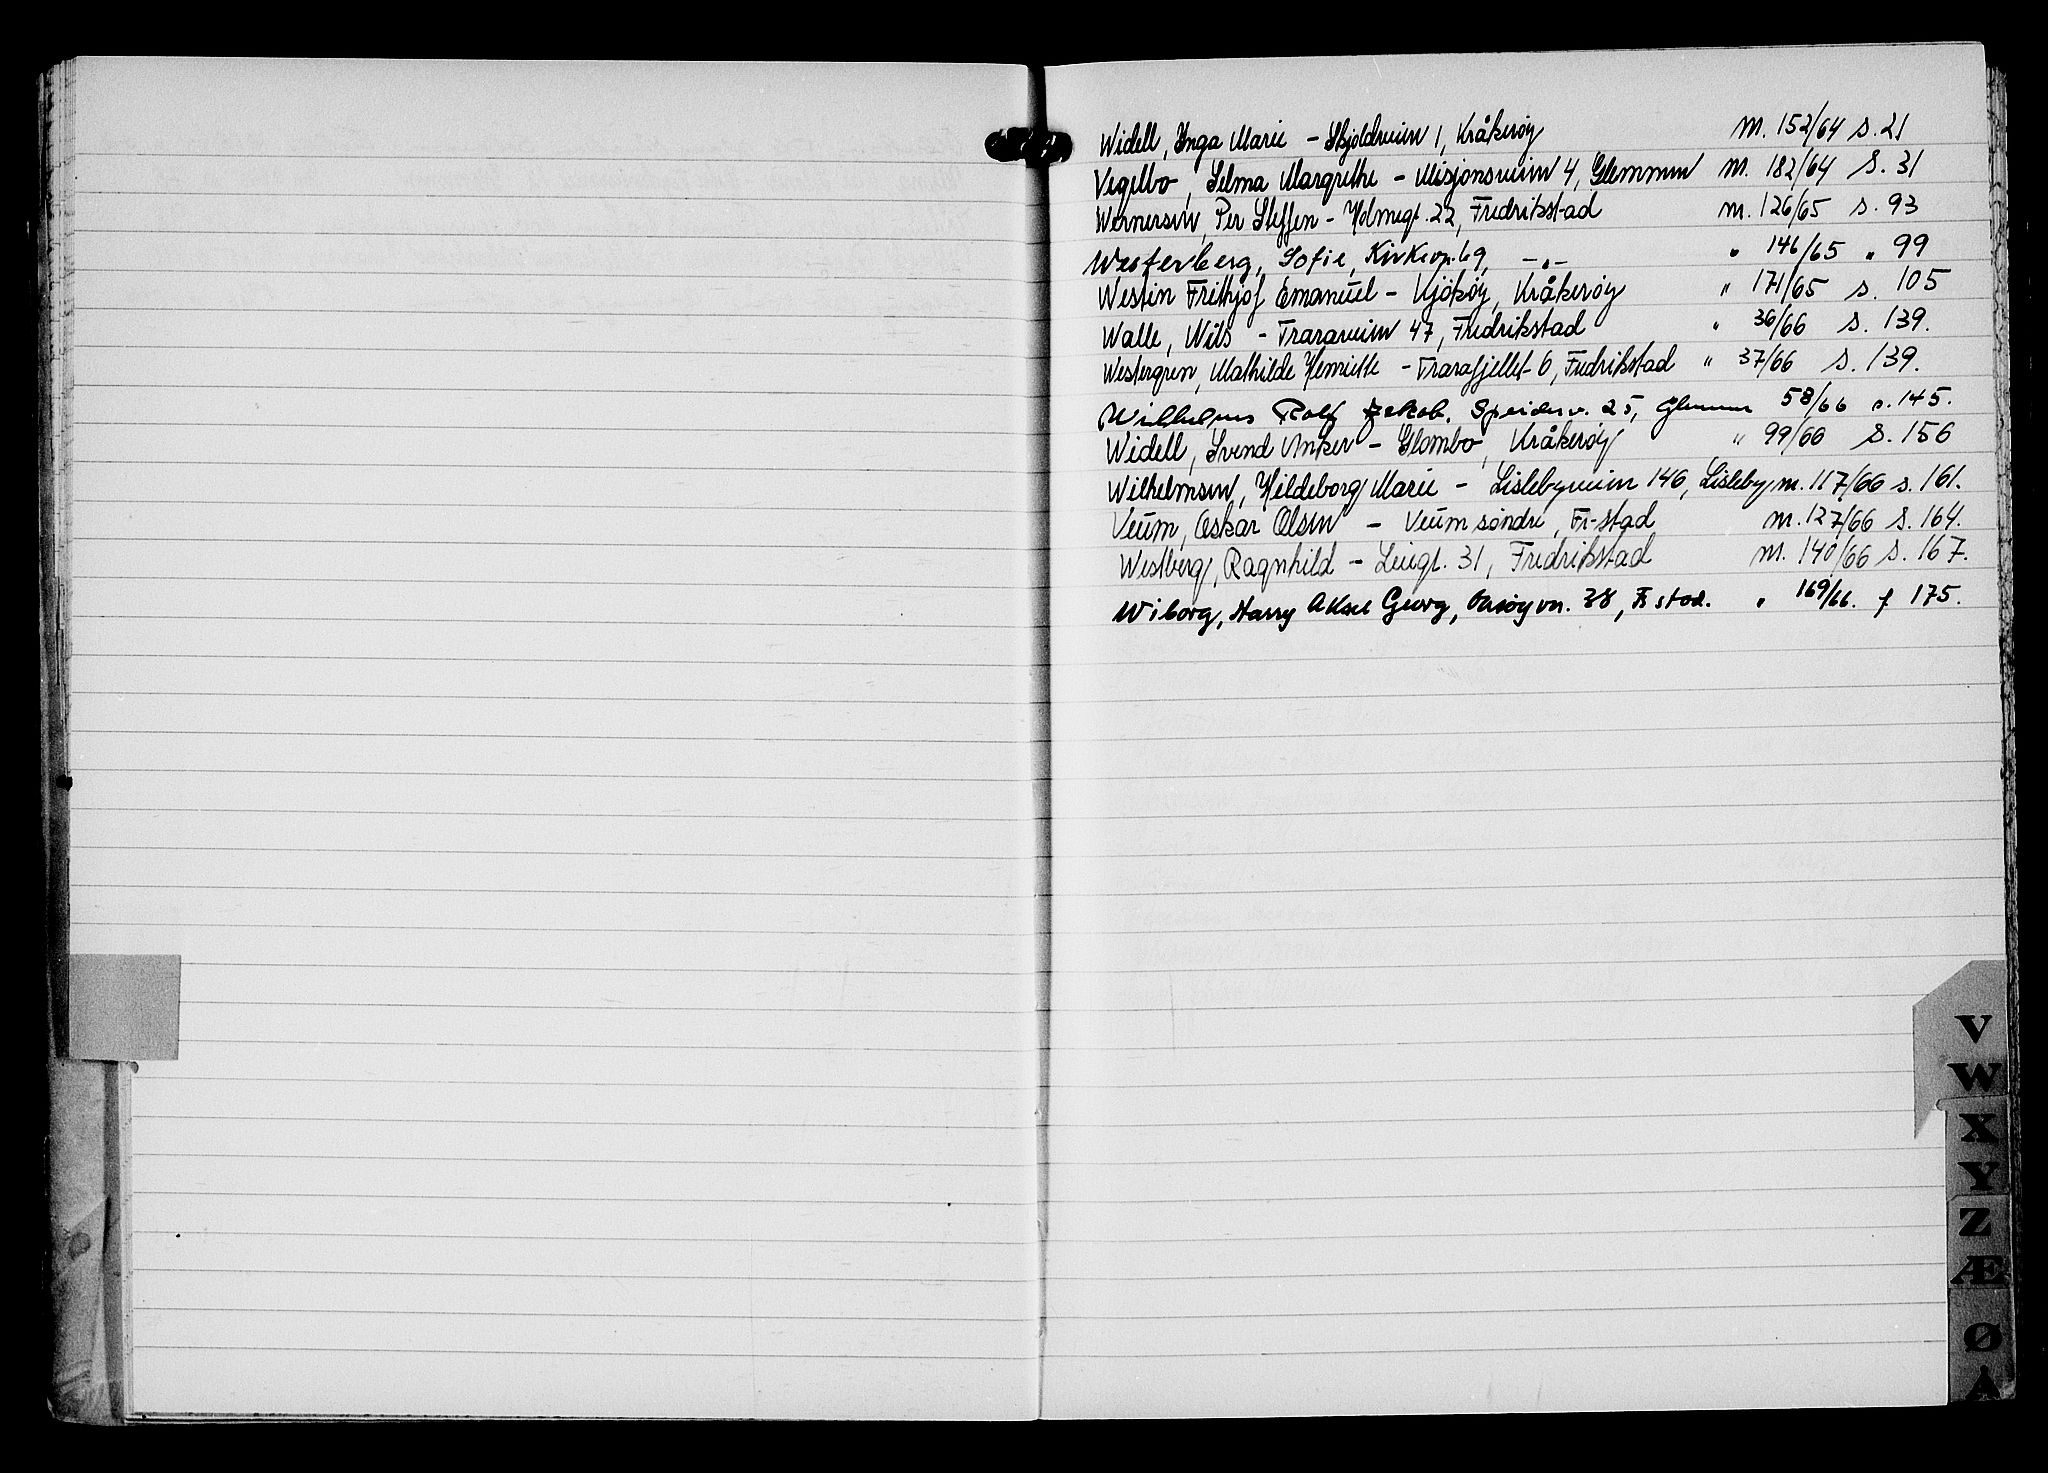 Widell, Inga Marie - Skjoldveien 1, Kråkerøy m. 152/64 s. 21
Vegelbo, Selma Margrethe - Misjonsveien 4, Glemmen m. 182/64 s. 31
Wernersen, Per Steffen - Holmegt. 22, Fredrikstad m. 126/65 s. 93
Westerberg, Sofie, Kirkevn. 69, -„- „ 146/65 „ 99
Westin Frithjof Emanuel - Kjøkøy, Kråkerøy „ 171/65 s. 105
Walle, Nils - Traraveien 47, Fredrikstad „ 36/66 s. 139.
Westergren, Mathilde Henriette - Trarafjellet 6, Fredrikstad „ 37/66 s. 139.
Rolf Jakob. Speiderv. 25, Glemmen 58/66 s. 145.
Widell, Svend Anker - Glombo, Kråkerøy „ 99/66 s. 156
Wilhelmsen, Hildeborg Marie - Lislebyveien 146, Lisleby m. 117/66 s. 161.
Veum, Oskar Olsen - Veum søndre, Fr-stad m. 127/66 s. 164.
Westberg, Ragnhild - Leiegt. 31, Fredrikstad m. 140/66 s. 167.
Wiborg, Harry Aksel Georg, Onsøyvn. 38, Fr stad. „ 169/66. s 175.
V
W
X
Y
Z
Æ
Ø
Å